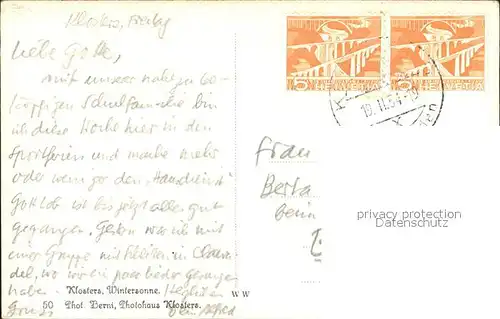 Klosters, Freitag
Liebe Gotte,
mit unserer nahezu 60-
köpfigen Schulfamilie bin
ich diese Woche hier in den
Sportferien und mache mehr
oder weniger den "Hausdienst"
Gottlob ist bis jetzt alles gut
gegangen. Gestern war ich mit
einer Gruppe mit Skiliften in
del, wo wir ein paar Lieder gesungen
haben. Herzlichen
Gruss Dein Alfred
50 Klosters, Wintersonne.
Phot. Berni, Photohaus Klosters.
W W
5 HELVETIA
5 HELVETIA
19.II.54
Frau
Berta
beim
privacy protection
watermark